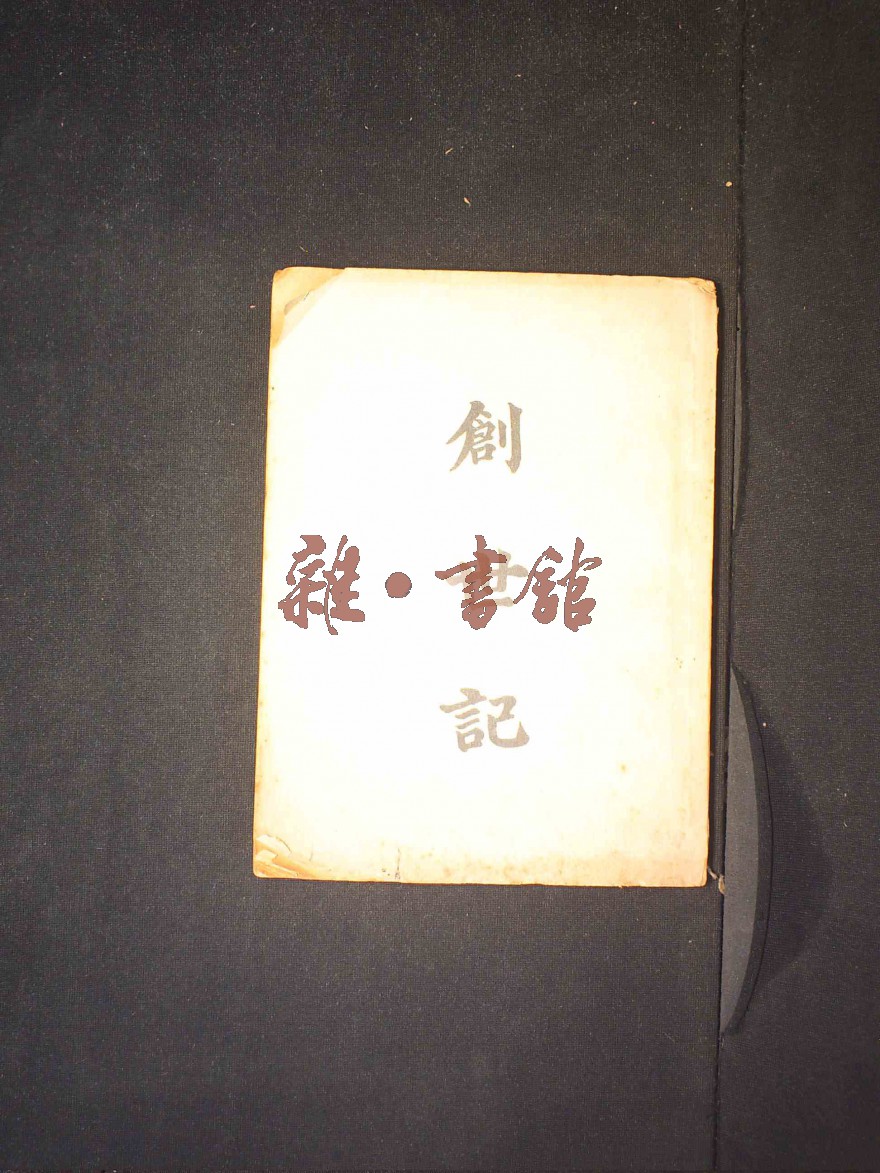 創世記
雜·書館